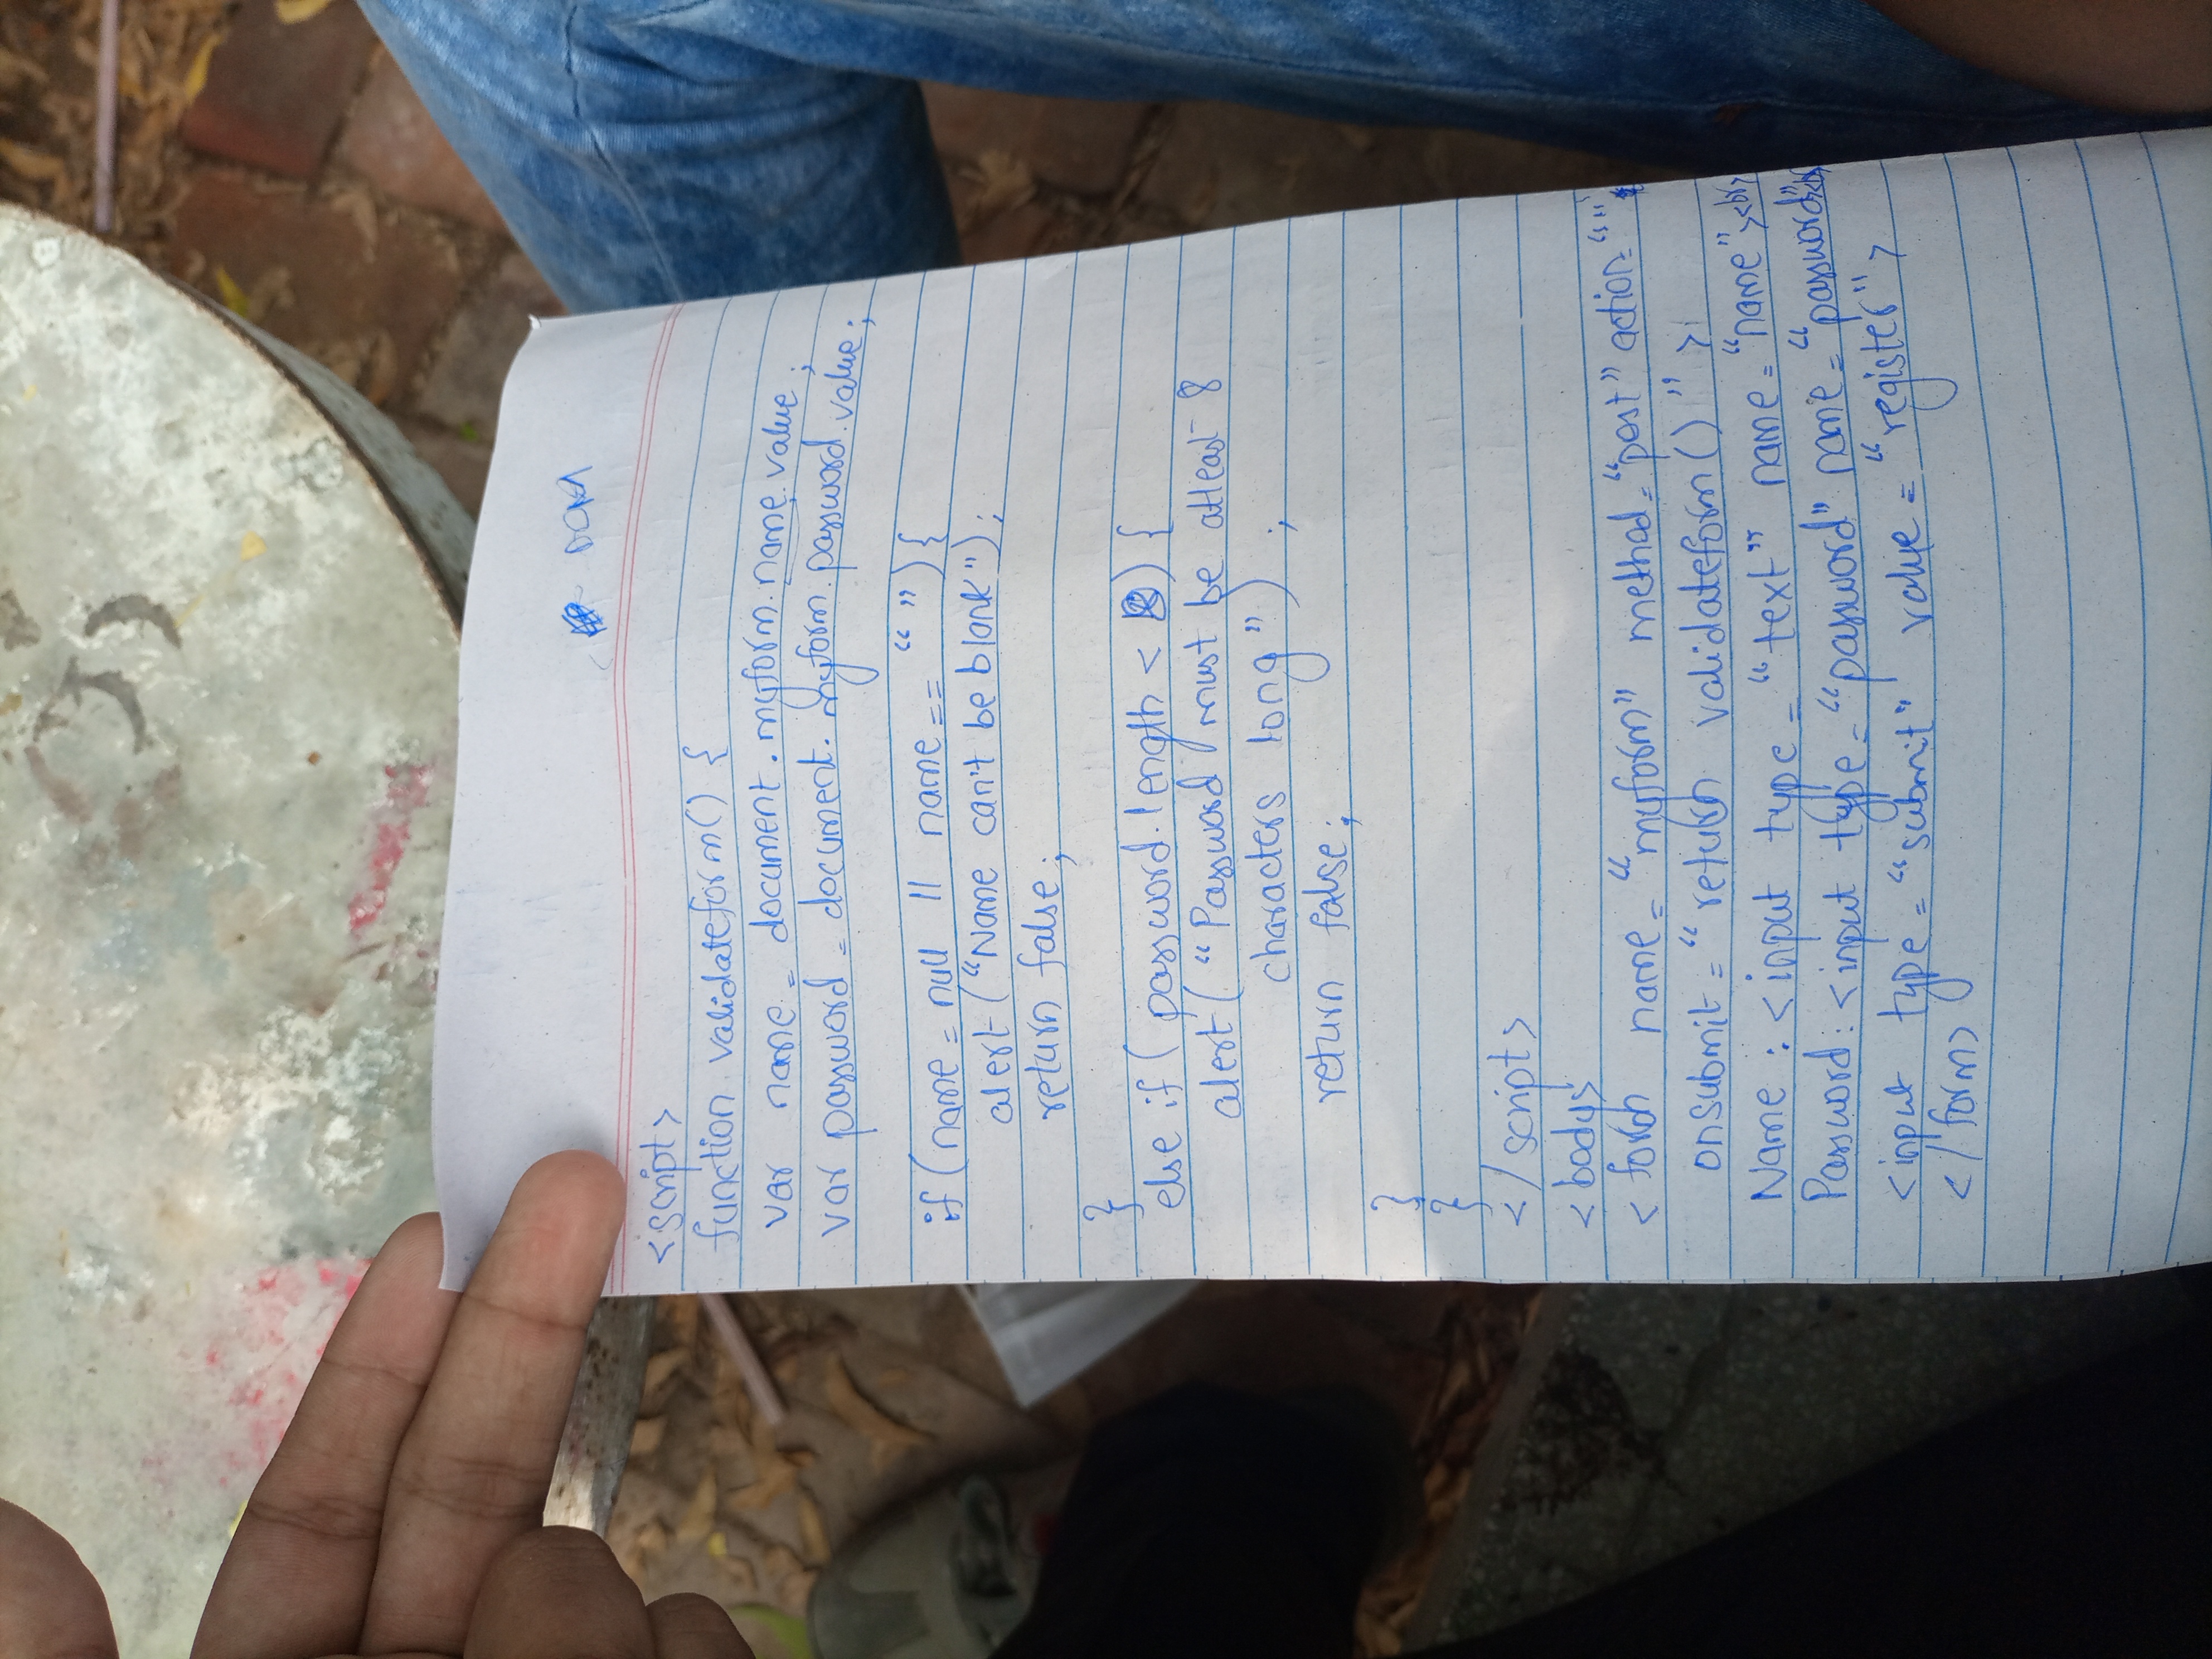 DOM
<script>
function validateform() {
var name = document.myform.name.value;
var password = document.myform.password.value;
if (name = null || name == "") {
alert ("Name can't be blank");
return false;
}
else if (password.length < 8) {
alert ("Password must be atleast 8
characters long") ;
return false;
}
}
</script>
<body>
<form name = "myform" method = "post" action = ""
onsubmit = "return validateform()" >
Name : <input type = "text" name = "name"><br>
Password : <input type = "password" name = "password"><br>
<input type = "submit" value = "register">
</form>